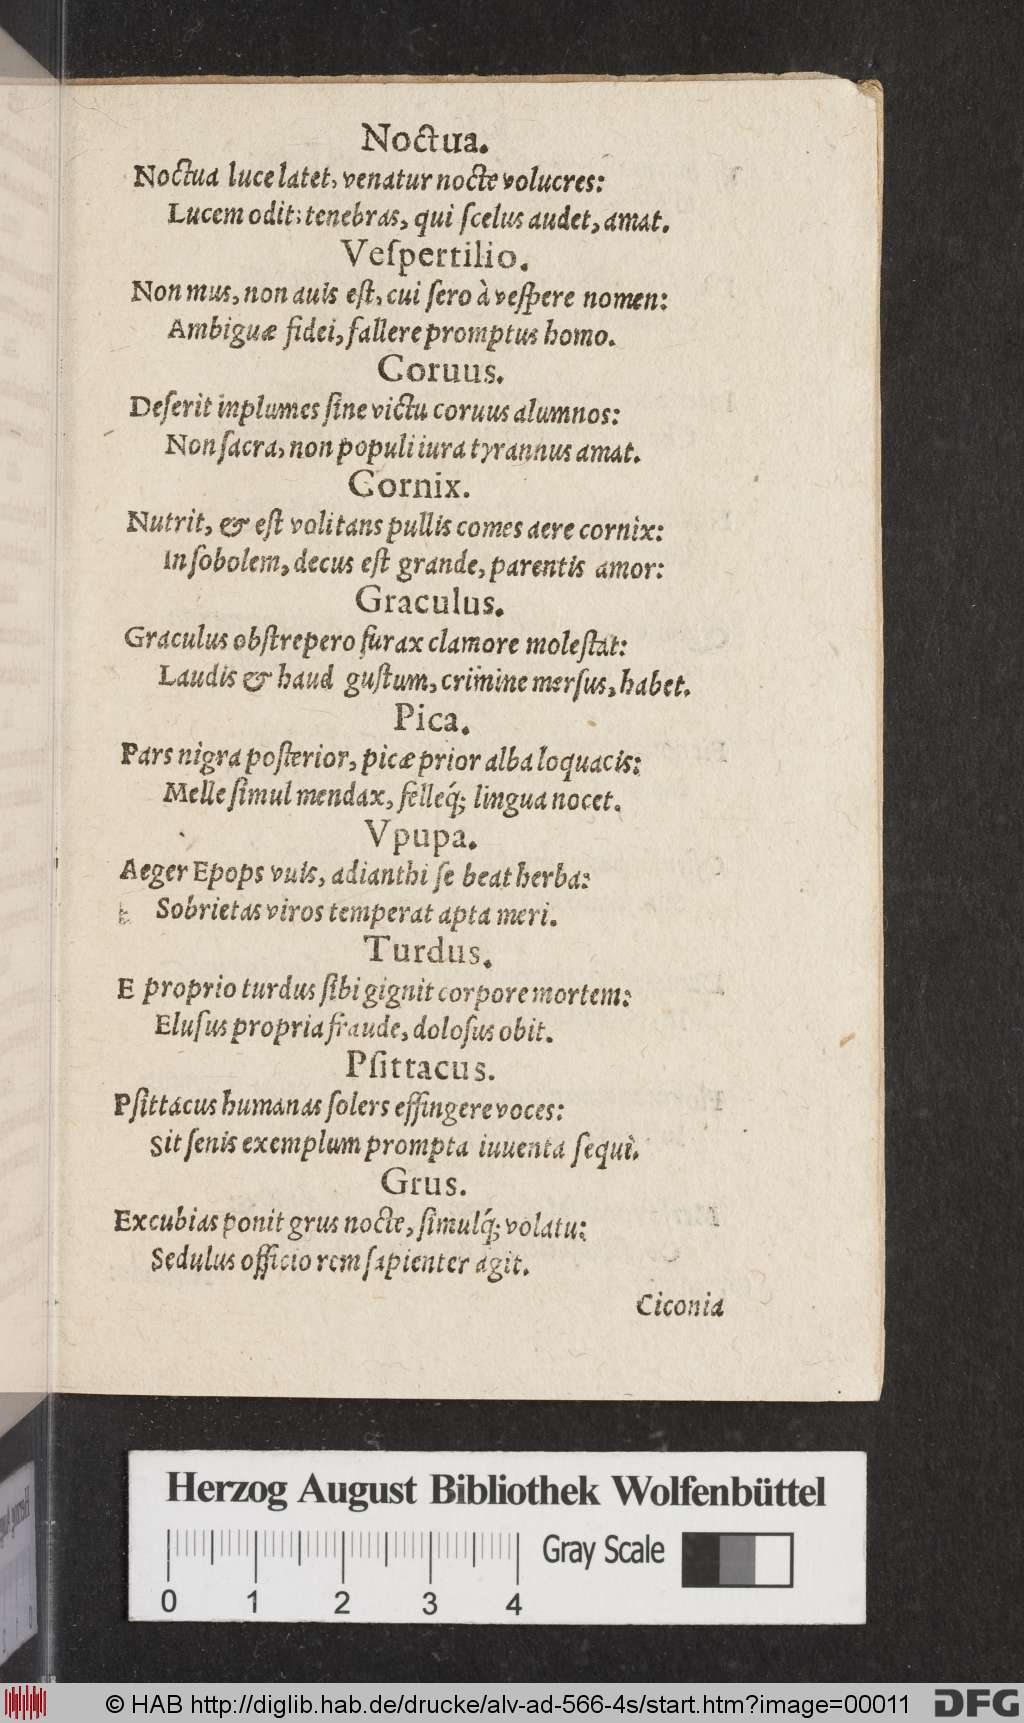 Noctua.
Noctua luce latet, venatur nocte volucres:
Lucem odit; tenebras, qui ſcelus audet, amat.
Veſpertilio.
Non mus, non auis eſt, cui ſero à veſpere nomen:
Ambiguæ fidei, fallere promptus homo.
Coruus.
Deſerit inplumes ſine victu coruus alumnos:
Non ſacra, non populi iura tyrannus amat.
Cornix.
Nutrit, & eſt volitans pullis comes aere cornix:
In ſobolem, decus eſt grande, parentis amor:
Graculus.
Graculus obſtrepero furax clamore moleſtat:
Laudis & haud guſtum, crimine merſus, habet.
Pica.
Pars nigra poſterior, picæ prior alba loquacis:
Melle ſimul mendax, felleq́; lingua nocet.
Vpupa.
Aeger Epops vuis, adianthi ſe beat herba:
Sobrietas viros temperat apta meri.
Turdus.
E proprio turdus ſibi gignit corpore mortem:
Eluſus propria fraude, doloſus obit.
Pſittacus.
Pſittacus humanas ſolers effingere voces:
Sit ſenis exemplum prompta iuuenta ſequi.
Grus.
Excubias ponit grus nocte, ſimulq́; volatu:
Sedulus officio rem ſapienter agit.
Ciconia
Herzog August Bibliothek Wolfenbüttel
0 1 2 3 4
Gray Scale
© HAB http://diglib.hab.de/drucke/alv-ad-566-4s/start.htm?image=00011
DFG